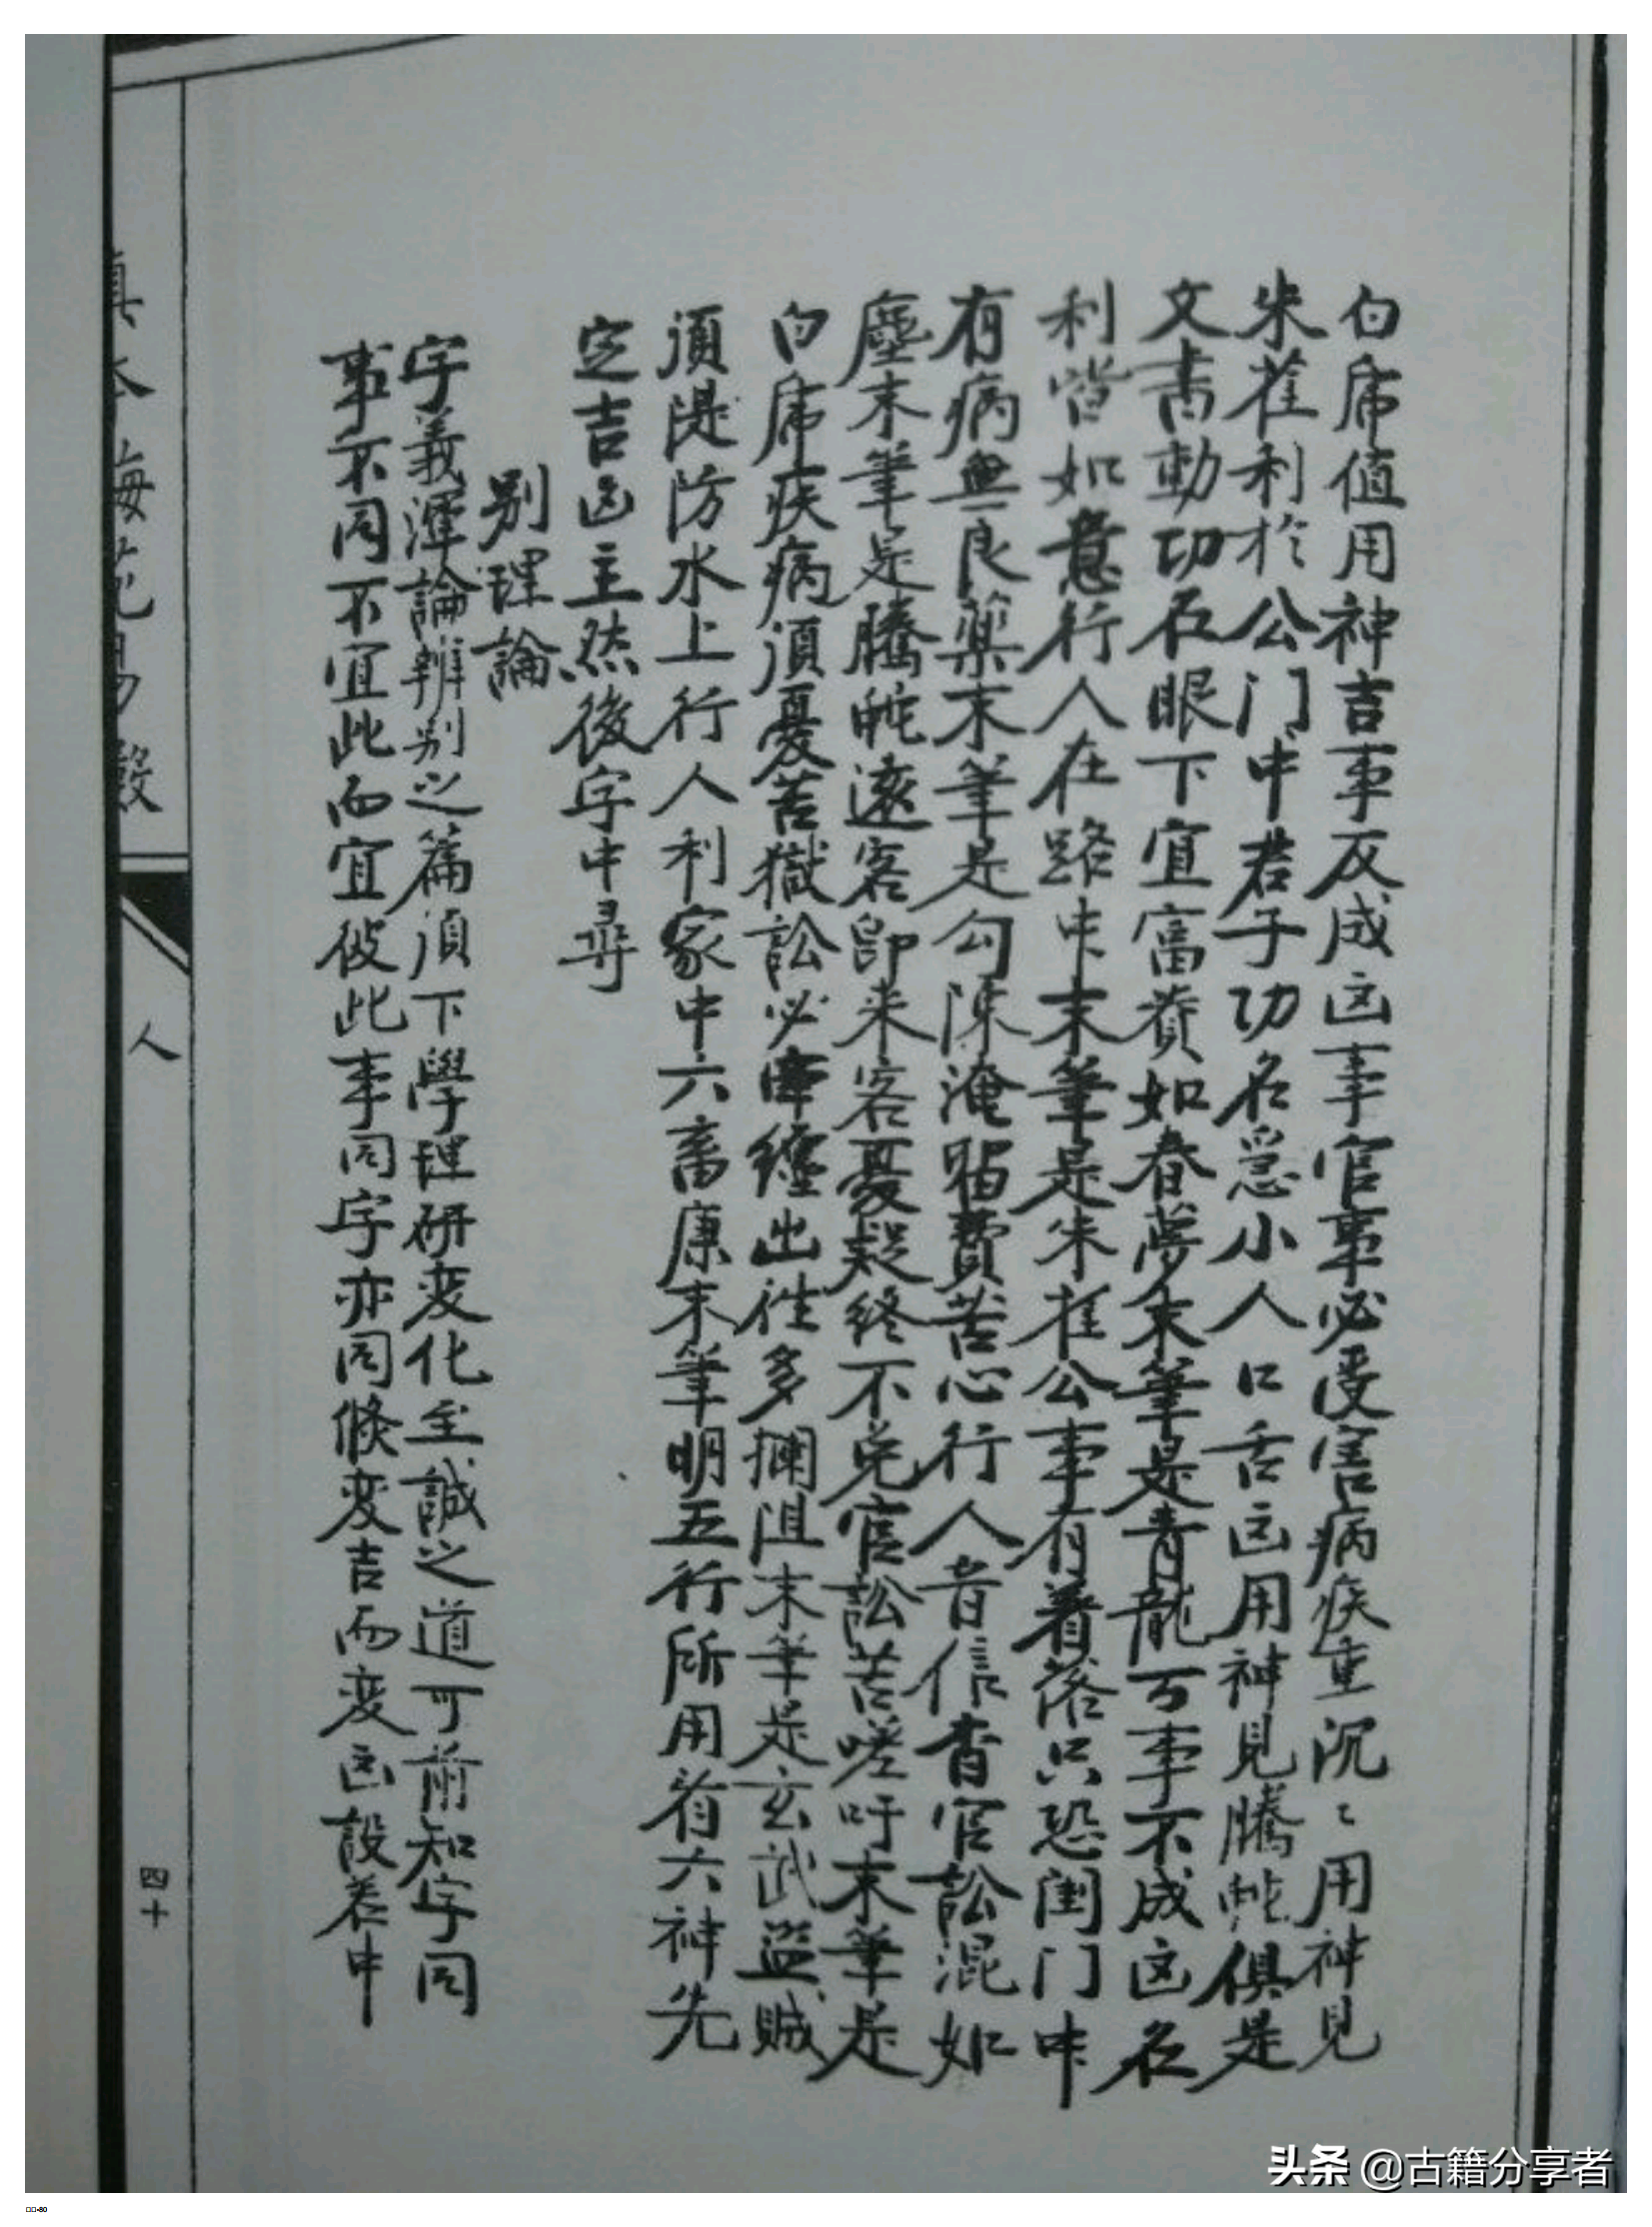 白虎值用神吉事反成凶事官事必受害病疾重沉〻用神見
朱雀利於公门中君子功名急小人口舌凶用神見騰蛇俱是
文書動功名眼下宜富貴如春夢末筆是青龍万事不成凶名
利皆如意行人在路中末筆是朱雀公事有着落只恐閨门中
有病無良藥末筆是勾陳淹留費苦心行人音信杳官訟混如
塵末筆是騰蛇遠客即来客憂疑終不免官訟苦嗟吁末筆是
白虎疾病須憂苦獄訟必牽纏出往多攔阻末筆是玄武盜賊
須隄防水上行人利家中六畜康末筆明五行所用有六神先
定吉凶主然後字中尋
别理論
字義渾論辨别之篇須下學理研变化至誠之道可前知字同
事不同不宜此而宜彼此事同字亦同倏変吉而変凶設若中
真本梅花易数
人
四十
头条 @古籍分享者
-80